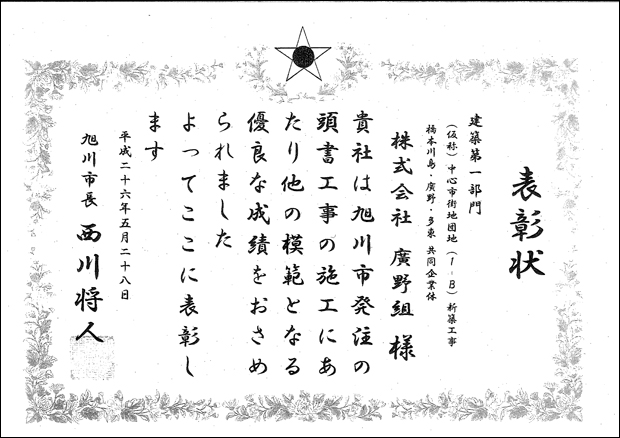 表彰状
建築第一部門
(仮称)中心市街地団地(1-B)新築工事
橋本川島・廣野・多東 共同企業体
株式会社 廣野組 様
貴社は旭川市発注の
頭書工事の施工にあ
たり他の模範となる
優良な成績をおさめ
られました
よってここに表彰し
ます
平成二十六年五月二十八日
旭川市長 西川将人